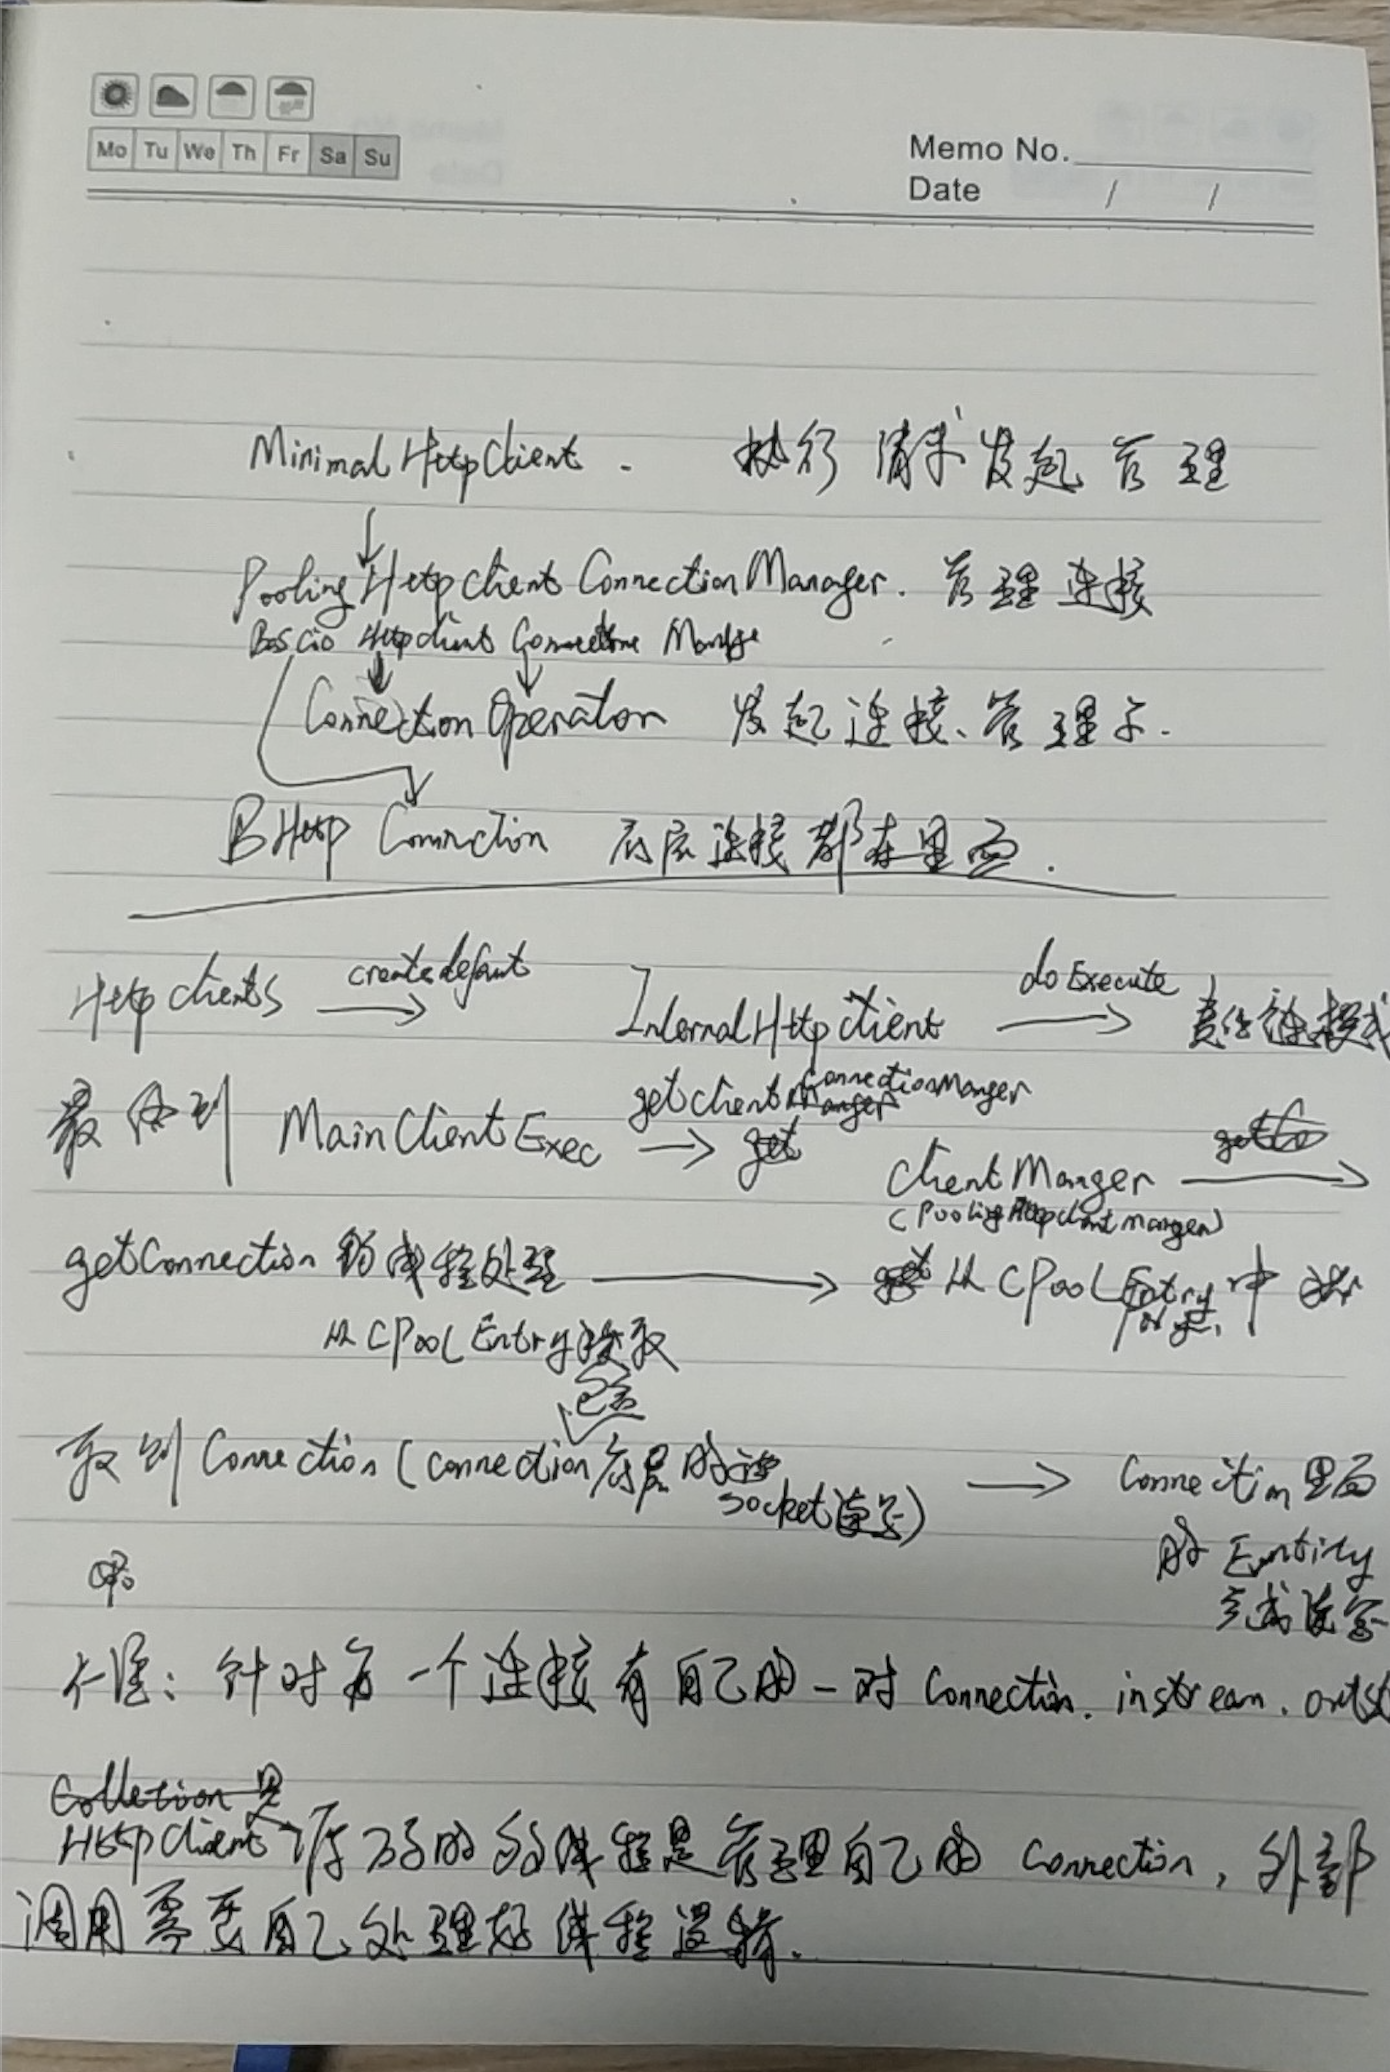 Mo Tu We Th Fr Sa Su
Memo No.
Date / /
Minimal HttpClient. 执行 请求 发起 管理
Pooling HttpClient Connection Manager. 管理 连接
HttpClient Connection
Connection Operator 发起连接、管理
BHttp Connection 底层连接都在里面.
Http clients createdefaut InternalHttpclient doExecute 责任链模式
最终到 MainClientExec getclient ConnectionManger
client Manger
(Pooling Httpclient manger)
getConnection 多线程处理 从 CPooL Entry 中
从 CPooL Entry 获取
包含
取到 Connection (connection 底层的 socket 读写) Connection 里面
的 Entity
完成读写
本质: 针对每一个连接有自己的一对 Connection. instream. outst
Colletion 是
HttpClient 库 的多线程是管理自己的 Connection, 外部
调用需要自己处理好线程逻辑.